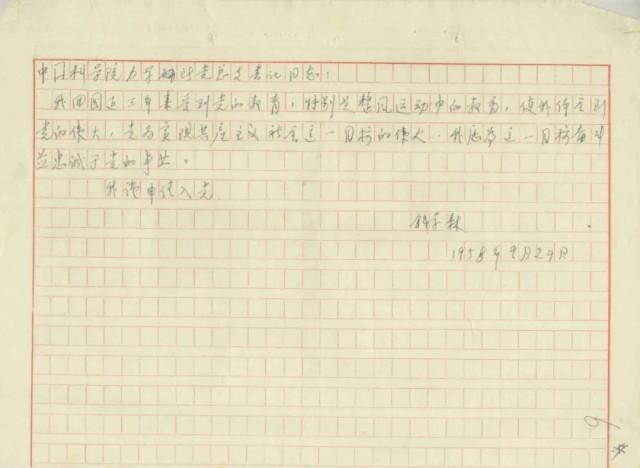 中国科学院力学研究所党总支书记同志：
我回国近三年来受到党的教育，特别是整风运动中的教育，使我体会到
党的伟大，党为实现共产主义社会这一目标的伟大。我愿为这一目标奋斗
并忠诚于党的事业。
我谨申请入党
钱学森
1958年9月24日
9